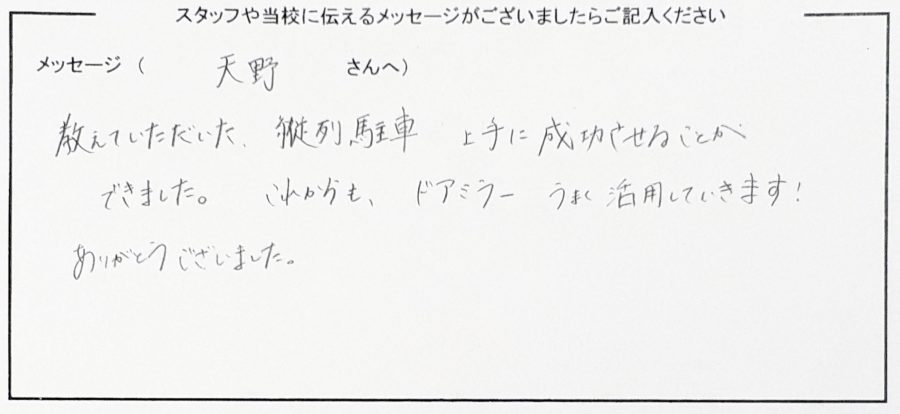 スタッフや当校に伝えるメッセージがございましたらご記入ください
メッセージ ( 天野 さんへ)
教えていただいた、縦列駐車 上手に成功させることが
できました。 これからも、ドアミラー うまく活用していきます!
ありがとうございました。